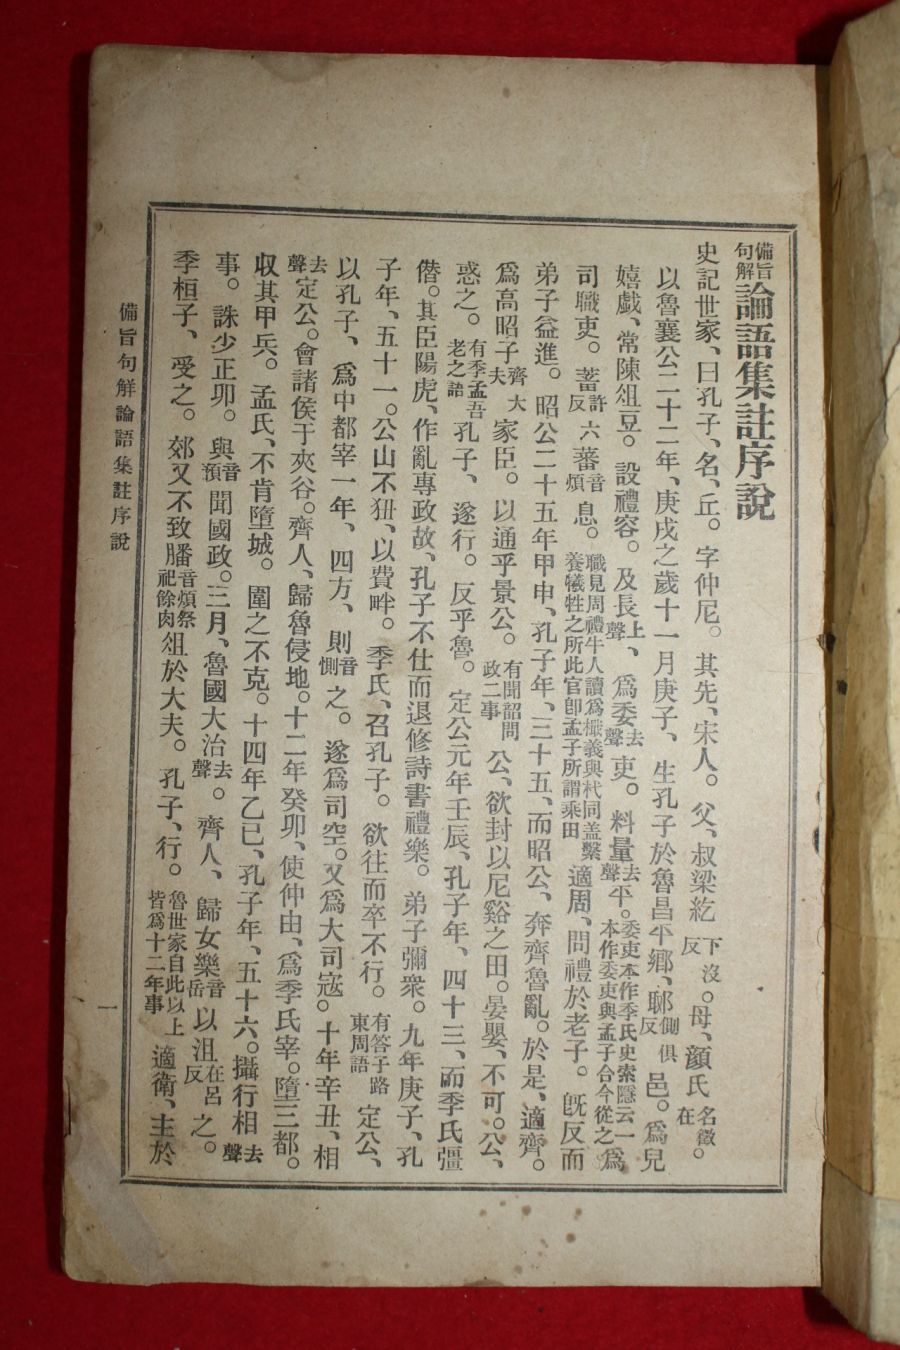 備旨句解論語集註序說
史記世家、曰孔子、名、丘。字仲尼。其先、宋人。父、叔梁紇下沒反。母、顏氏名徵在。
以魯襄公二十二年、庚戌之歲十一月庚子、生孔子於魯昌平鄕、郰側俱反邑。爲兒
嬉戱、常陳俎豆。設禮容。及長上聲、爲委去聲吏。料量去聲平。委吏本作季氏史索隱云一本作委吏與孟子合今從之爲
司職吏。蓄許六反蕃音煩息。職見周禮牛人讀爲樴義與杙同盖繫養犧牲之所此官卽孟子所謂乘田適周、問禮於老子。旣反而
弟子益進。昭公二十五年甲申、孔子年、三十五、而昭公、奔齊魯亂。於是、適齊。
爲高昭子齊大夫家臣。以通乎景公。有聞韶問政二事公、欲封以尼谿之田。晏嬰、不可。公、
惑之。有季孟吾老之語孔子、遂行。反乎魯。定公元年壬辰、孔子年、四十三、而季氏彊
僭。其臣陽虎、作亂專政故、孔子不仕而退修詩書禮樂。弟子彌衆。九年庚子、孔
子年、五十一。公山不狃、以費畔。季氏、召孔子。欲往而卒不行。有答子路東周語定公、
以孔子、爲中都宰一年、四方、則音惻之。遂爲司空。又爲大司寇。十年辛丑、相
去聲定公。會諸侯于夾谷。齊人、歸魯侵地。十二年癸卯、使仲由、爲季氏宰。墮三都。
収其甲兵。孟氏、不肯墮城。圍之不克。十四年乙巳、孔子年、五十六。攝行相去聲
事。誅少正卯。與音預聞國政。三月、魯國大治去聲。齊人、歸女樂音岳以沮在呂反之。
季桓子、受之。郊又不致膰音煩祭祀餘肉俎於大夫。孔子、行。魯世家自此以上皆爲十二年事適衛、主於
備旨句解論語集註序說
一